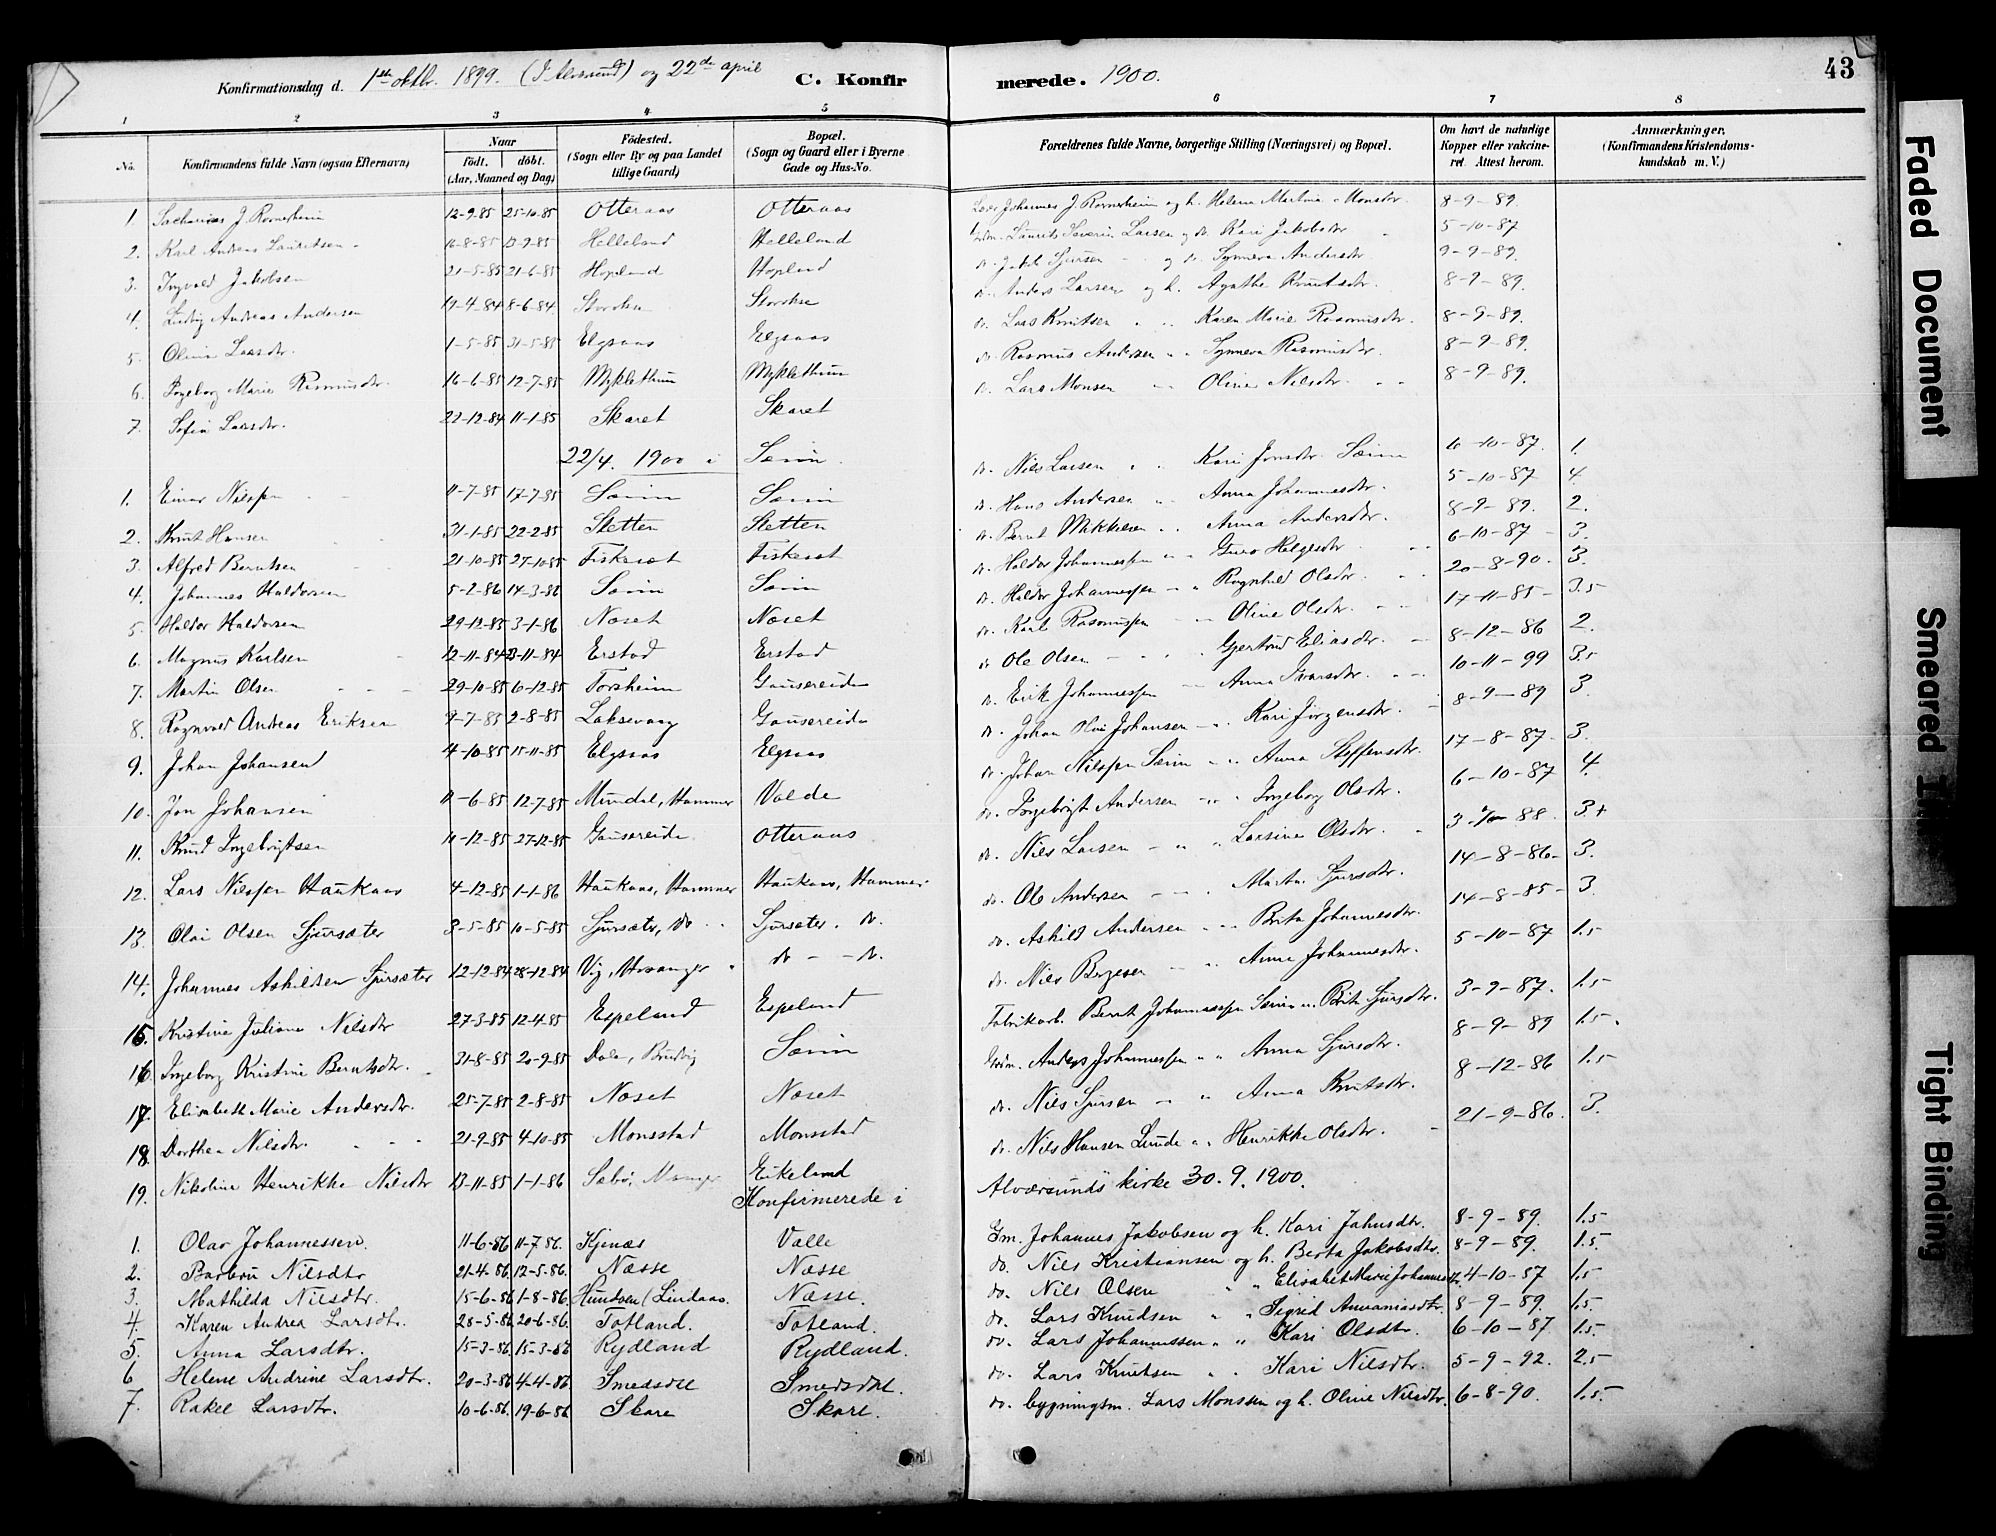 Konfirmationsdag d. 1ste oktbr. 1899. (I Alversund) og 22de april C. Konfirmerede. 1900. 43
1 2 3 4 5 6 7 8
No. Konfirmandens fulde Navn (ogsaa Efternavn) Naar födt. döbt. (Aar, Maaned og Dag) Födested. (Sogn eller By og paa Landet tillige Gaard) Bopæl. (Sogn og Gaard eller i Byerne Gade og Hus-No. Forældrenes fulde Navne, borgerlige Stilling (Næringsvei) og Bopæl. Om havt de naturlige Kopper eller vakcineret. Attest herom. Anmærkninger. (Konfirmandens Kristendomskundskab m. V.)
1. Sacharias J. 12-9-85 25-10-85 Otteraas Otteraas Johannes J. og h. Helene Martina Monsdr. 8-9-89.
2. Karl Andreas Lauritsen 16-8-85 13-9-85 Helleland Helleland Laurits Severin Larsen og do. Kari Jakobsdr. 5-10-87
3. Ingvald Jakobsen 21-5-85 21-6-85 Hopland Hopland do. Jakob Sjursen og do. Synneva Andersdr. 9-9-89.
4. Ludvig Andreas Andersen 19-4-84 8-6-84 Storokse Storokse do. Anders Larsen og h. Agathe Knutsdr. 8-9-89.
5. Olina Larsdr. 1-5-85 31-5-85 Elgsaas Elgsaas do. Lars Knutsen " " Karen Marie Rasmusdr. 8-9-89.
6. Ingeborg Marie Rasmusdr. 16-6-85 12-7-85 Myklethun Myklethun do. Rasmus Andersen " " Synneva Rasmusdr. 8-9-89.
7. Sofia Larsdr. 22-12-84 11-1-85 Skaret Skaret do. Lars Monsen " " Olina Nilsdr. 8-9-89.
22/4. 1900 i Sæim.
1. Einar Nilssen 11-7-85 17-7-85 Sæim Sæim do. Nils Larsen " " Kari Jonsdr. Sæim 6-10-87. 1.
2. Knut Hansen 31-1-85 22-2-85 Sletten Sletten do. Hans Andersen " " Anna Johannesdr. 5-10-87 4.
3. Alfred Berntsen 21-10-85 27-10-85 Fiskeset Fiskeset do. Bernt Mikkelsen " " Anna Andersdr. 8-9-89. 2.
4. Johannes Haldorsen 5-2-86 14-3-86 Sæim Sæim do. Haldor Johannessen " " Guro Helgesdr. 6-10-87 3.
5. Haldor Haldorsen 29-12-85 3-1-86 Næset Næset do. Haldor Johannessen " " Ragnhild Olsdr. 20-8-90. 3.
6. Magnus Karlsen 12-11-84 23-11-84 Erstad Erstad do. Karl Rasmussen " " Oline Olsdr. 17-11-85 3.5
7. Martin Olsen 29-10-85 6-12-85 Torsheim Gausereide do. Ole Olsen " " Gjertrud Eliasdr. 8-12-86 2.
8. Ragnvald Andreas Eriksen 9-7-85 2-8-85 Laksevaag Gausereide do. Erik Johannessen " " Anna Ivarsdr. 10-11-99 3.5
9. Johan Johansen 4-10-85 15-11-85 Elgsaas Elgsaas do. Johan Olai Johansen " " Kari Jörgensdr. 8-9-89 3.
10. Jon Johansen 11-6-85 12-7-85 Mundal, Hammer Valde do. Johan Nilssen Sæim " " Anna Steffensdr. 17-8-87. 3.
11. Knud Ingebrigtsen 11-12-85 27-12-85 Gausereide Otteraas do. Ingebrigt Andersen " " Ingeborg Olsdr. 6-10-87 4.
12. Lars Nilssen Haukaas 4-12-85 1-1-86 Haukaas, Hammer Haukaas, Hammer do. Nils Larsen " " Larsina Olsdr. 88. 3+
13. Olai Olsen Sjursæter 3-5-85 10-5-85 Sjursæter, do Sjursæter. do. do. Ole Andersen " " Marta Sjursdr. 14-8-86. 3.
14. Johannes Askildsen Sjursæter 12-12-84 28-12-84 Vig, Hosanger do - - do. do. Askild Andersen " " Brita Johannesdr. 14-8-85 3.
15. Kristine Juliane Nilsdr 27-3-85 12-4-85 Espeland Espeland do. Nils Börgesen " " Anna Johannesdr. 5-10-87 1.5
16. Ingeborg Kristine Berntsdr. 31-8-85 20-9-85 Dale, Bruvig Sæim Fabrikarb. Bernt Johannessen Sæim " Brita Sjursdr. 3-9-87. 1.5
17. Elisabeth Marie Andersdr. 25-7-85 2-8-85 Næset Næset Grdm. Anders Johannessen " " Anna Sjursdr. 8-9-89 1.5.
18. Dorthea Nilsdr. 21-9-85 4-10-85 Monsstad Monsstad do. Nils Sjursen " " Anna Knutsdr. 8-12-86 1.5
19. Nikoline Henrikke Nilsdr 13-11-85 1-1-86 Sæbö, Manger Eikeland do. Nils Hansen Lunde " " Henrikke Olsdr. 21-9-86. 3.
Konfirmerede i Alværsunds kirke 30. 9. 1900.
1. Olav Johannessen. 11-6-86 11-7-86. Kjenæs Valle Gm. Johannes Jakobsen og h. Kari Jahnsdtr. 8-9-89. 1.5
2. Barbru Nilsdtr 21-4-86. 12-5-86. Næsse Næsse do. Nils Kristiansen og h. Berta Jakobsdtr. 8-9-89. 1.5.
3. Mathilda Nilsdtr. 15-6-86 1-8-86. Hundven (Lindaas. Næsse. do. Nils Olsen " Elisabet Marie Johannesdtr. 4-10-87 1.5
4. Karen Andrea Larsdtr. 28-5-86 20-6-86. Totland. Totland. do. Lars Knudsen " " Sigrid Annaniasdtr. 8-9-89. 1.5.
5. Anna Larsdtr. 15-3-86 15-3-86 Rydland Rydland. do. Lars Johannessen " " Kari Olsdtr. 6-10-87 1.5
6 Helene Andrine Larsdtr. 20-3-86 4-4-86. Smedsdal Smedsdal. do. Lars Knutsen " Kari Nilsdtr. 5-9-92. 2.5
7. Rakel Larsdtr. 10-6-86. 19-6-86 Skare Skare. do. bygningsm. Lars Monssen og h. Oline Nilsdtr. 6-8-90. 1.5
Faded Document
Smeared Ink
Tight Binding